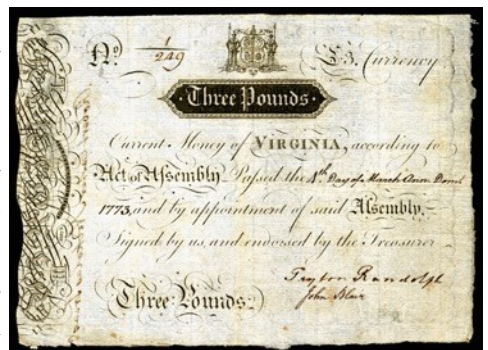 No. 1/249 £3. Currency
Three Pounds
Current Money of VIRGINIA, according to
Act of Assembly Passed the 4th. Day of March Ann: Domi
1773, and by appointment of said Assembly,
Signed by us, and endorsed by the Treasurer
Three Pounds
Peyton Randolph
John Blair